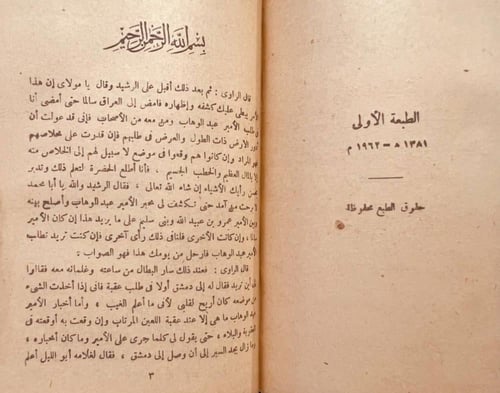 الطبعة الأولى
١٣٨١ ه - ١٩٦٢ م
حقوق الطبع محفوظة
بسم الله الرحمن الرحيم
قال الراوى : ثم بعد ذلك أقبل على الرشيد وقال يا مولاى إن هذا
يطى عليك كشفه وإظهاره فامض إلى العراق سالما حتى أمضى أنا
طلب الأمير عبد الوهاب ومن معه من الأصحاب فإنى قد عولت أن
الأرض ذات الطول والعرض فى طلبهم فإن قدرت على خلاصهم
المراد وإن كانوا هم وقعوا فى موضع لا سبيل لهم إلى الخلاص منه
بالمال العظيم والخطب الجسيم ، فأنا أطلع الحضرة لتعلم ذلك وتدبر
رأيك الأشياء إن شاء الله تعالى ، فقال الرشيد والله يا أبا محمد
برحت من آمد حتى تكشف لى مخبر الأمير عبد الوهاب وأصلح بينه
الأمير عمرو بن عبيد الله وبنى سليم على ما يريد هذا إن كان الأمير
وإن كانت الأخرى فلنا فى ذلك رأى آخرى فإن كنت تريد تطلب
عبد الوهاب فارحل من يومك هذا فهو الصواب .
قال الراوى : فعند ذلك سار البطال من ساعته وغلمانه معه فقالوا
أين تريد فقال له إلى دمشق أولا فى طلب عقبة فإنى إذا أخذت الشىء
موضعه كان أربح لقلبى لأنى ما أعلم الغيب ، وأما أخبار الأمير
الوهاب ما هى إلا عند عقبة اللعين المرتاب وإن وقعت به أوقعته فى
والبلاء ، حتى يقول لى كلما جرى على الأمير وما كان أخباره ،
زال يجد السير إلى أن وصل إلى دمشق ، فقال لغلامه أبو الليل أعلم
٣